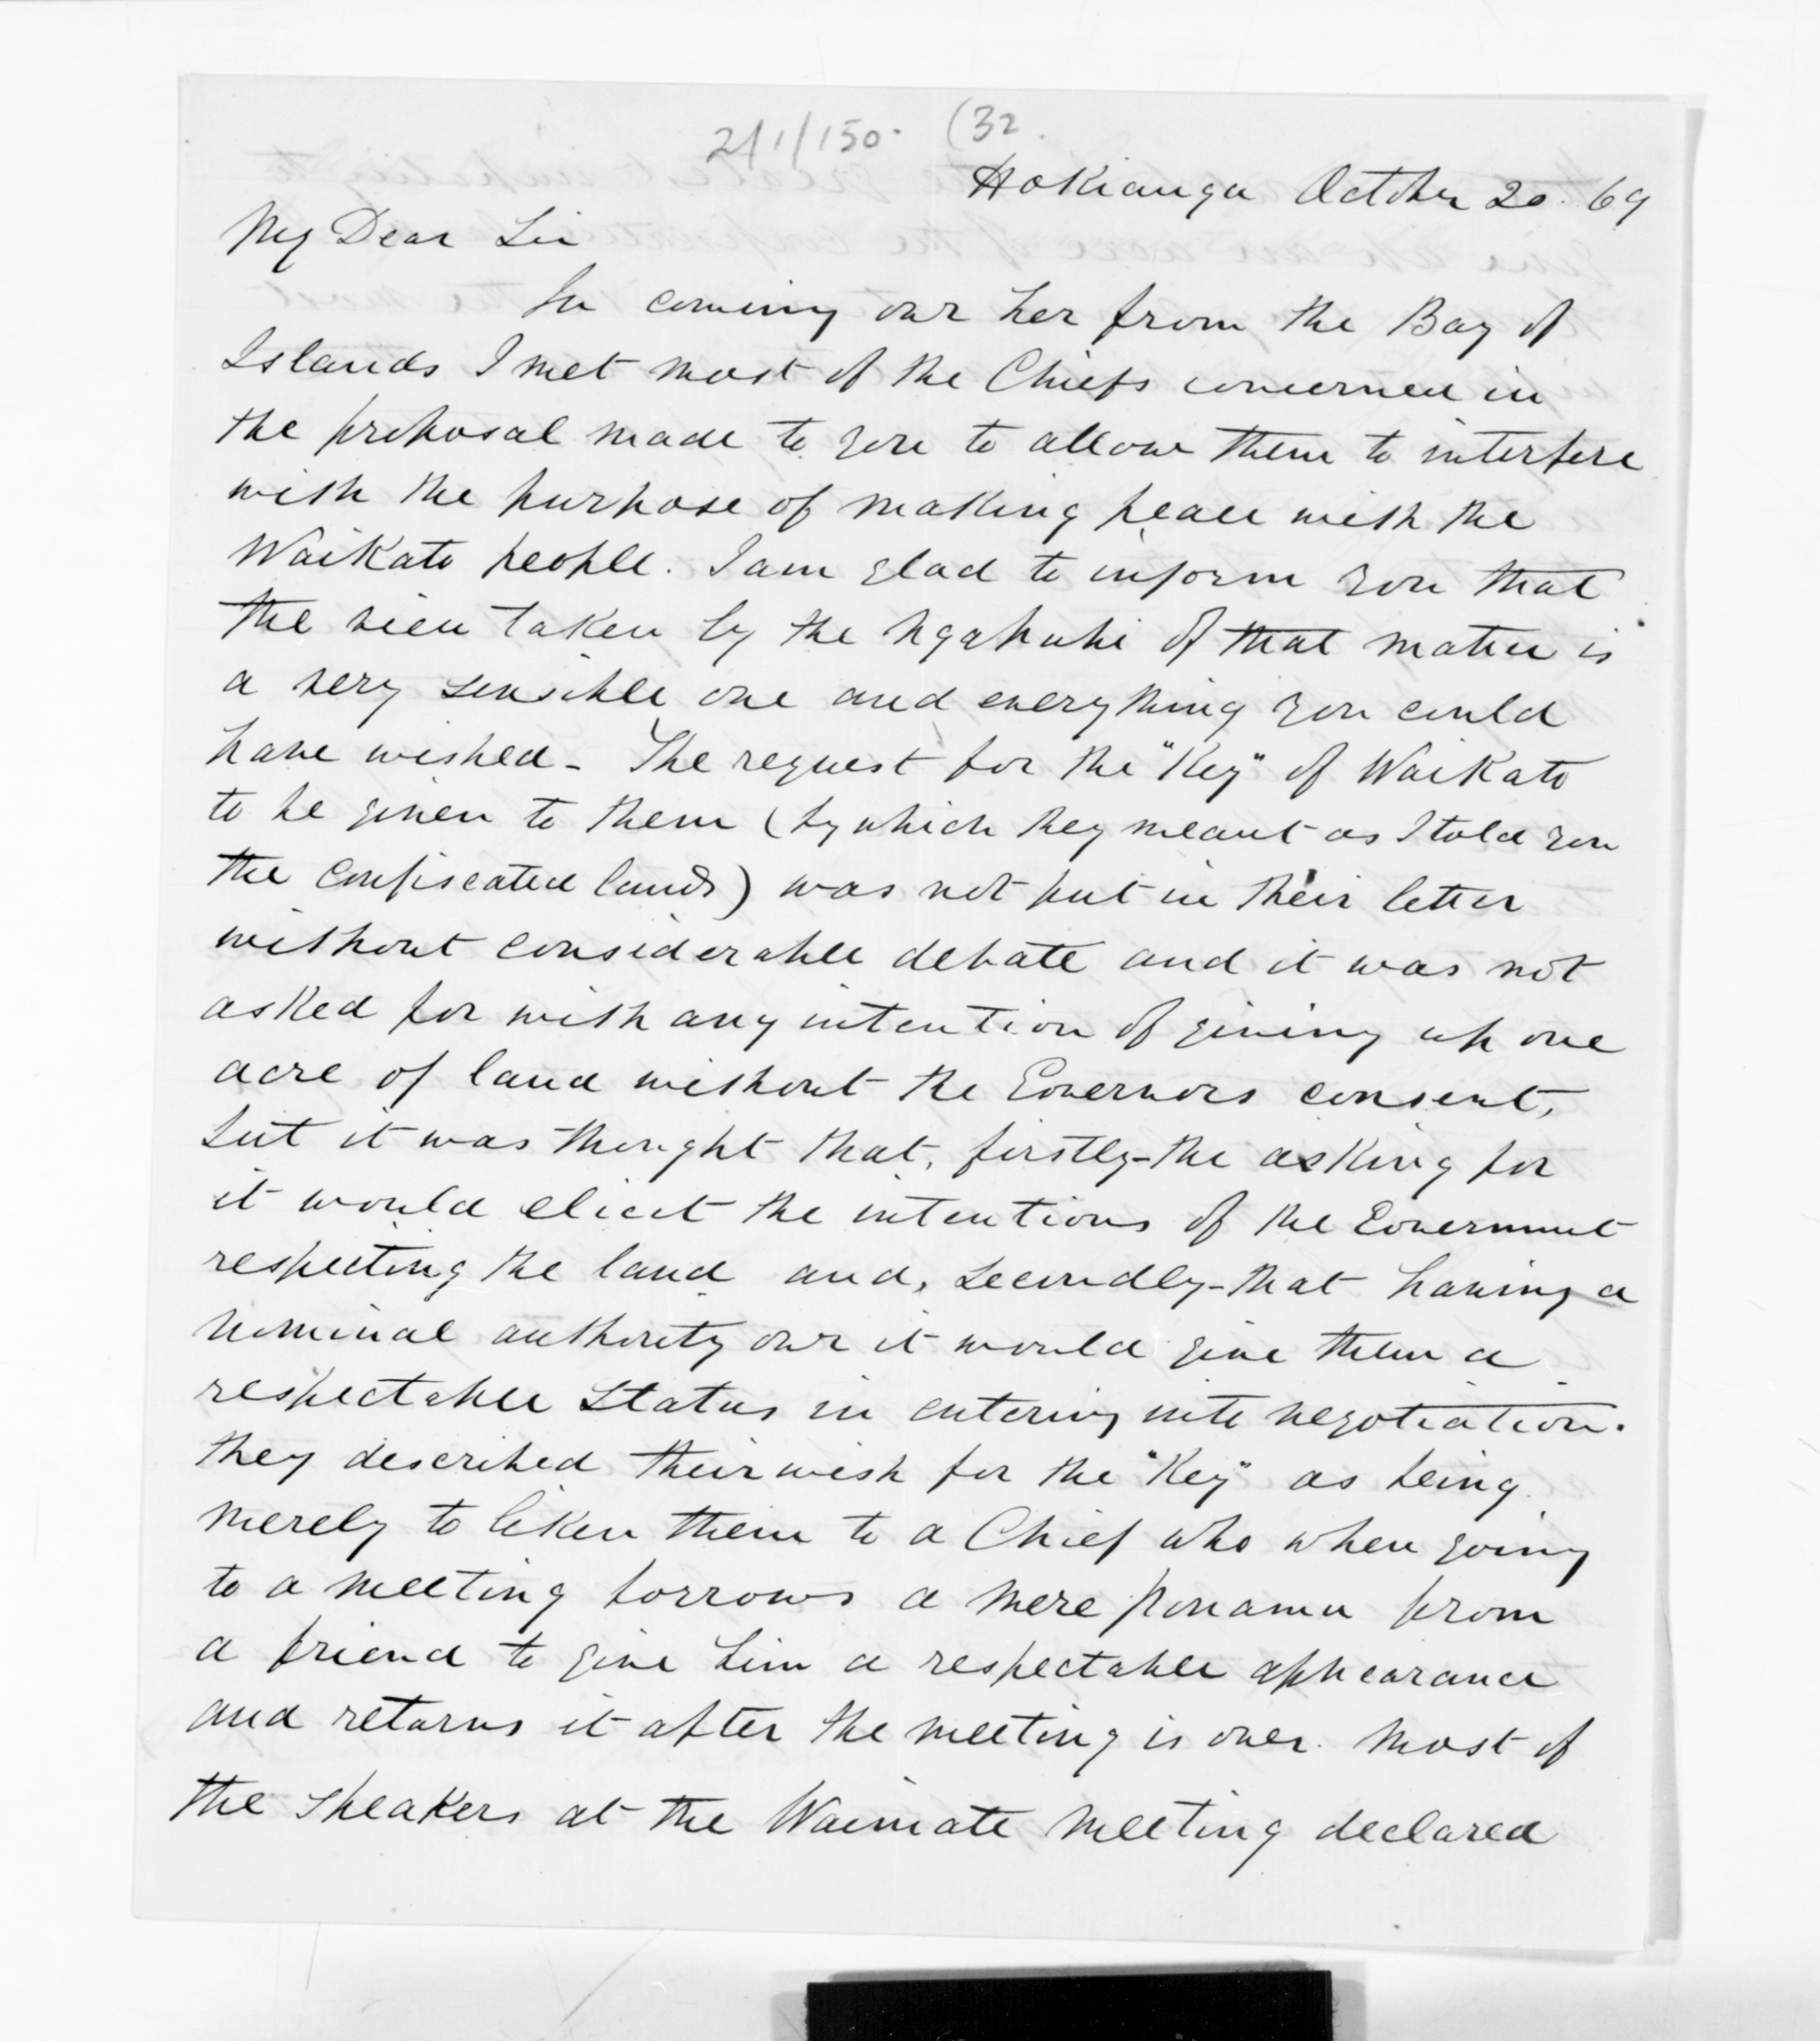 2/1/150. (32.
Hokianga October 20. 69
My Dear Sir
In coming over her from the Bay of
Islands I met most of the Chiefs concerned in
the proposal made to you to allow them to interfere
with the purpose of making peace with the
Waikato people. I am glad to inform you that
the view taken by the Ngapuhi of that matter is
a very sensible one and everything you could
have wished - The request for the "Key" of Waikato
to be given to them (by which they meant as I told you
the confiscated lands) was not put in their letter
without considerable debate and it was not
asked for with any intention of giving up one
acre of land without the Governors consent,
but it was thought that, firstly - the asking for
it would elicit the intentions of the Government
respecting the land and, secondly - that having a
nominal authority over it would give them a
respectable status in entering into negotiation.
they described their wish for the "Key" as being
merely to liken them to a Chief who when going
to a meeting borrows a mere ponamu from
a friend to give him a respectable appearance
and returns it after the meeting is over. Most of
the speakers at the Waimate meeting declared